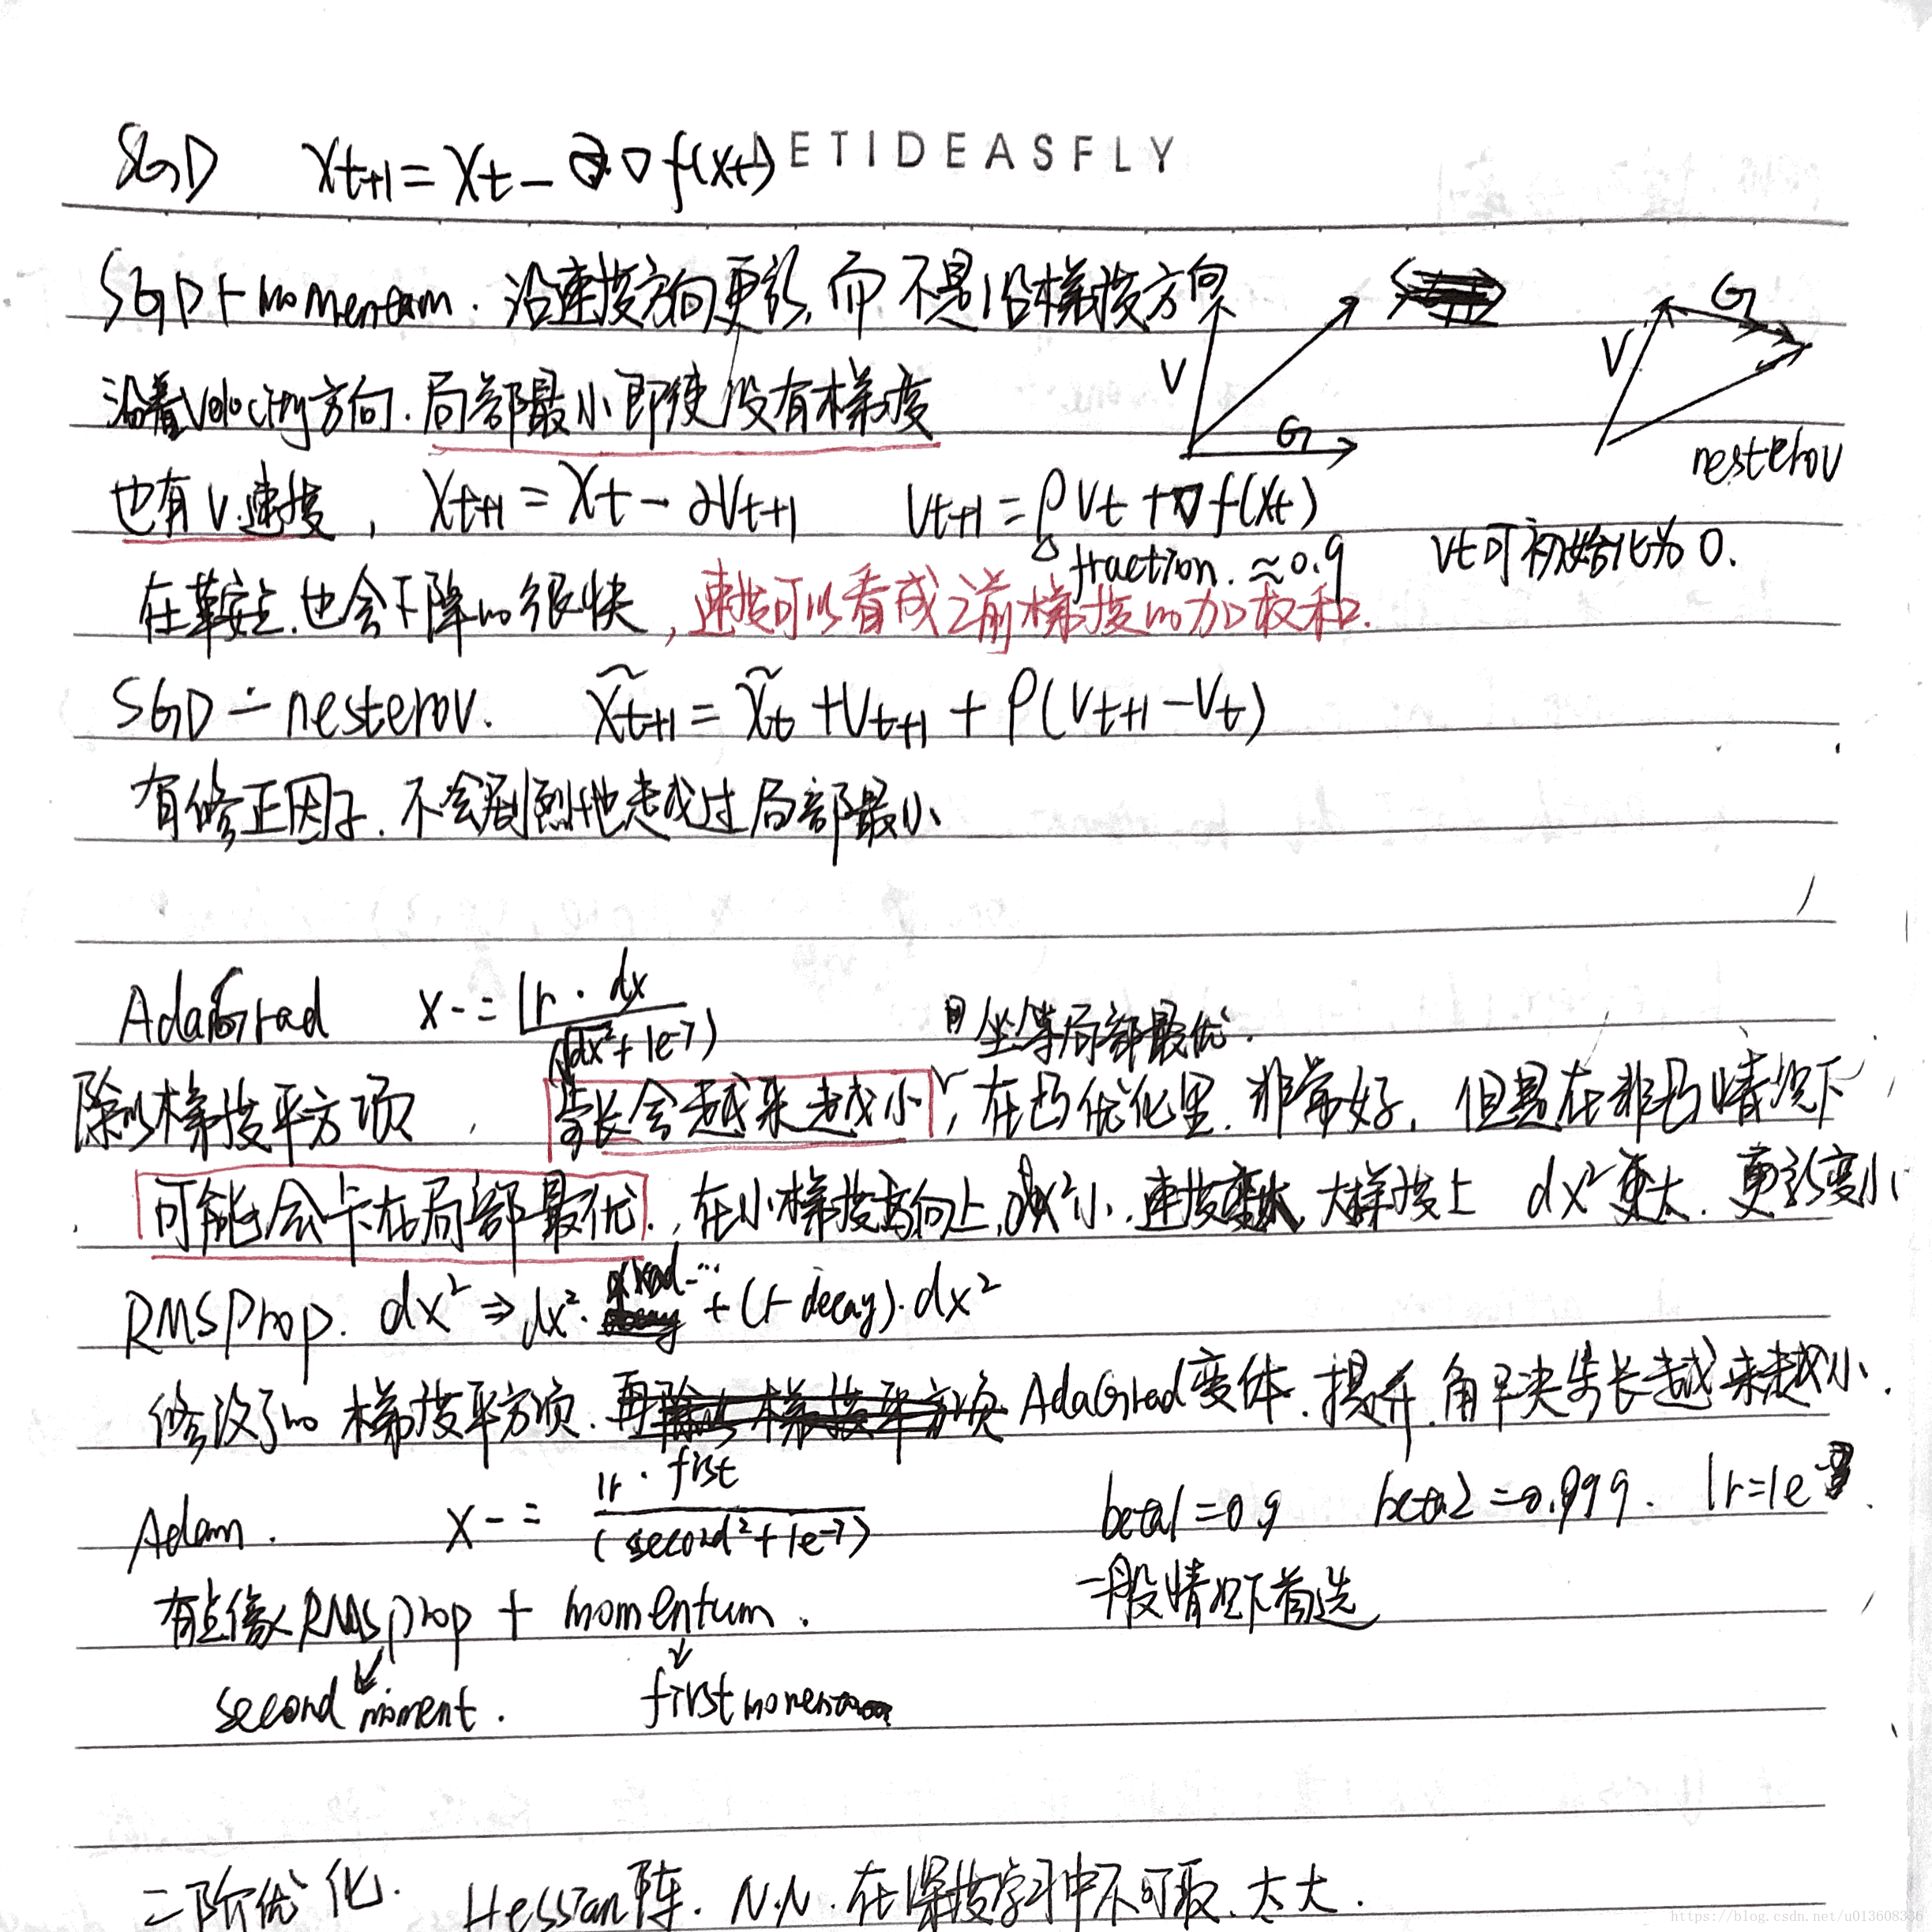 SGD Xt+1 = Xt - ∂·∇f(xt) ETIDEASFLY
SGD+momentum. 沿速度方向更新,而不是沿梯度方向
沿着Velocity方向.局部最小即使没有梯度
V G V G
nesterov
也有V.速度, Xt+1 = Xt - ∂Vt+1 Vt+1 = ρVt + ∇f(xt)
fraction. ≈0.9 Vt可初始化为0.
在鞍点.也会下降的很快,速度可以看成之前梯度的加权和.
SGD - nesterov. X̃t+1 = X̃t + Vt+1 + ρ(Vt+1 - Vt)
有修正因子.不会剧烈地越过局部最小
AdaGrad x -= lr · dx / (√dx²+1e-7)
坐等局部最优.
除以梯度平方项, 步长会越来越小,在凸优化里.非常好,但是在非凸情况下
可能会卡在局部最优.,在小梯度方向上,dx²小.速度变大,大梯度上 dx²更大.更新变小
RMSProp. dx² ⇒ dx². + (1-decay).dx²
修改了的梯度平方项.再 AdaGrad变体.提升.解决步长越来越小.
Adam. x -= lr · first / (second²+1e-7) beta1=0.9 beta2=0.999. lr=1e
有点像RMSprop + momentum. 一般情况下首选
second moment. first
二阶优化. Hessian阵. N.N.在深度学习中不可取.太大.
https://blog.csdn.net/u013608336